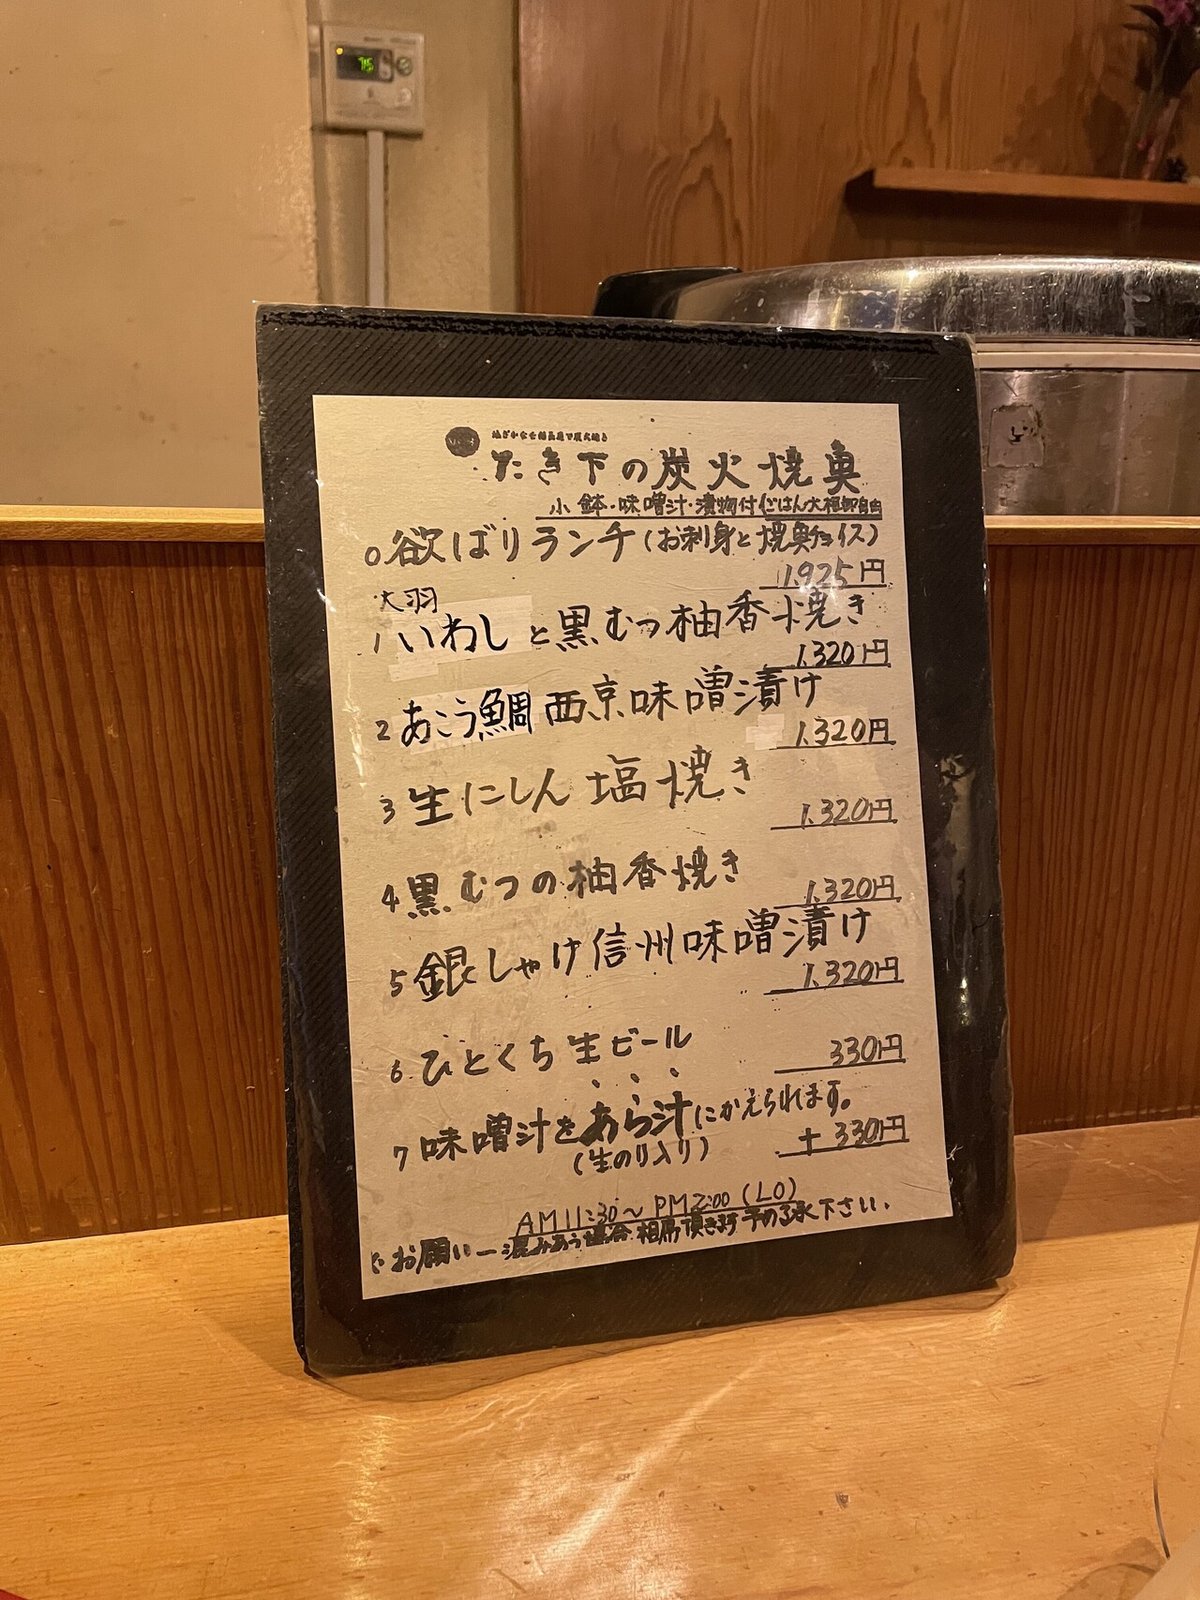 たき下の炭火焼魚
小鉢・味噌汁・漬物付(ごはん大穂都自由
0 欲ばりランチ(お刺身と焼魚チョイス)
1.925円
大羽
1 いわしと黒むつ柚香焼き
1.320円
2 あこう鯛西京味噌漬け
1.320円
3 生にしん塩焼き
1.320円
4 黒むつの柚香焼き
1.320円
5 銀しゃけ信州味噌漬け
1.320円
6 ひとくち生ビール
330円
7 味噌汁をあら汁にかえられます。
(生のり入り)
+330円
AM11:30〜PM2:00(LO)
お願いー混みあう場合相席頂きます予めご了承下さい.
715